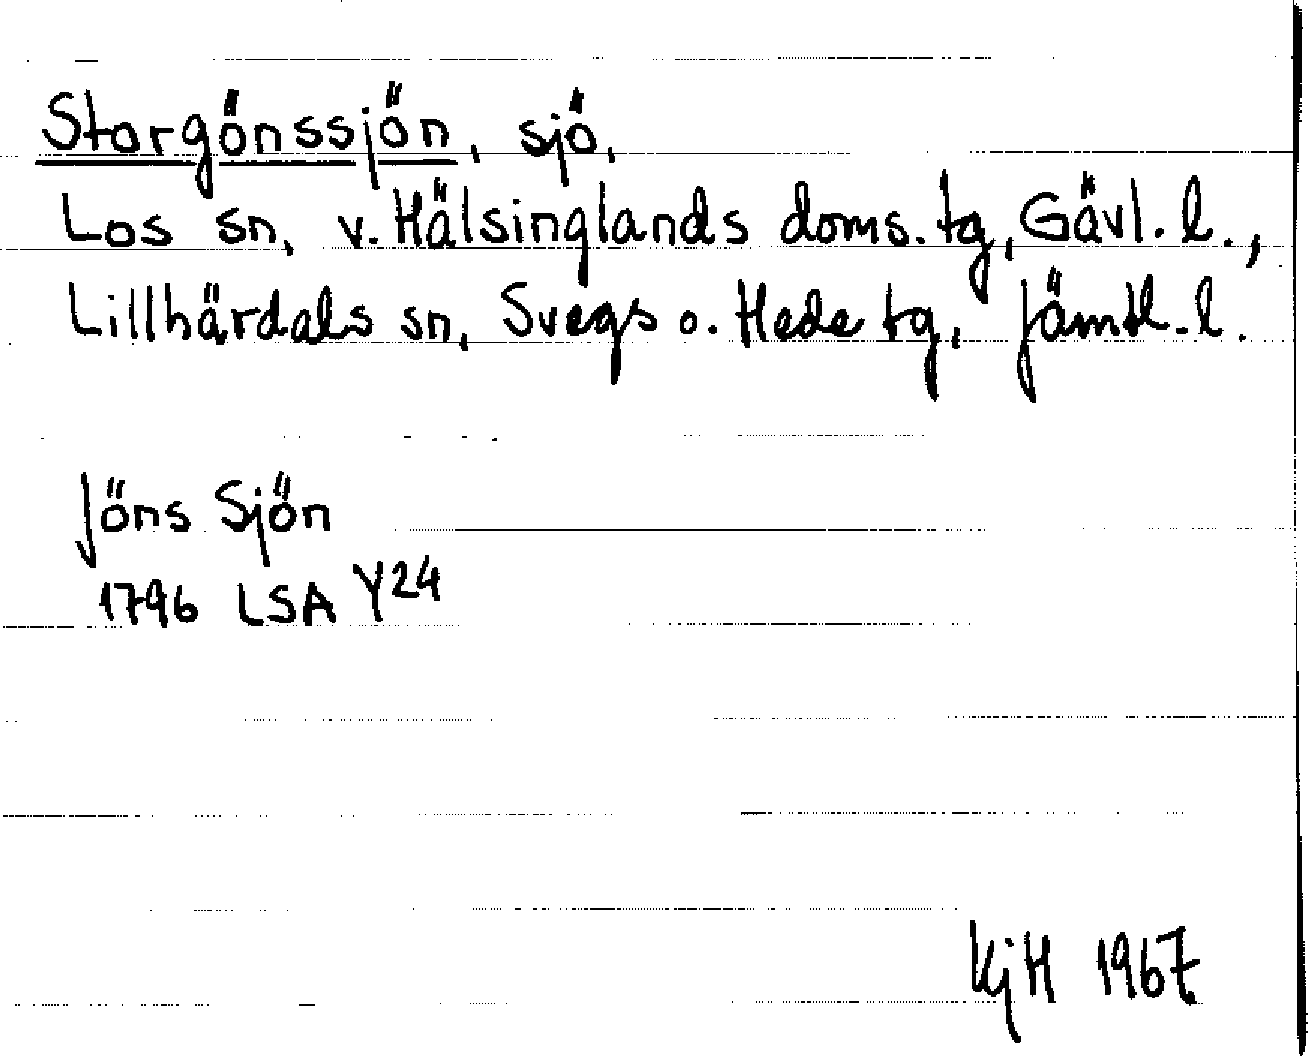 Storgönssjön, sjö,
Los sn, v. Hälsinglands doms. tg, Gävl. l.,
Lillhärdals sn, Svegs o. Hede tg, Jämtl. l.
Jöns Sjön
1796 LSA Y24
KjH 1967